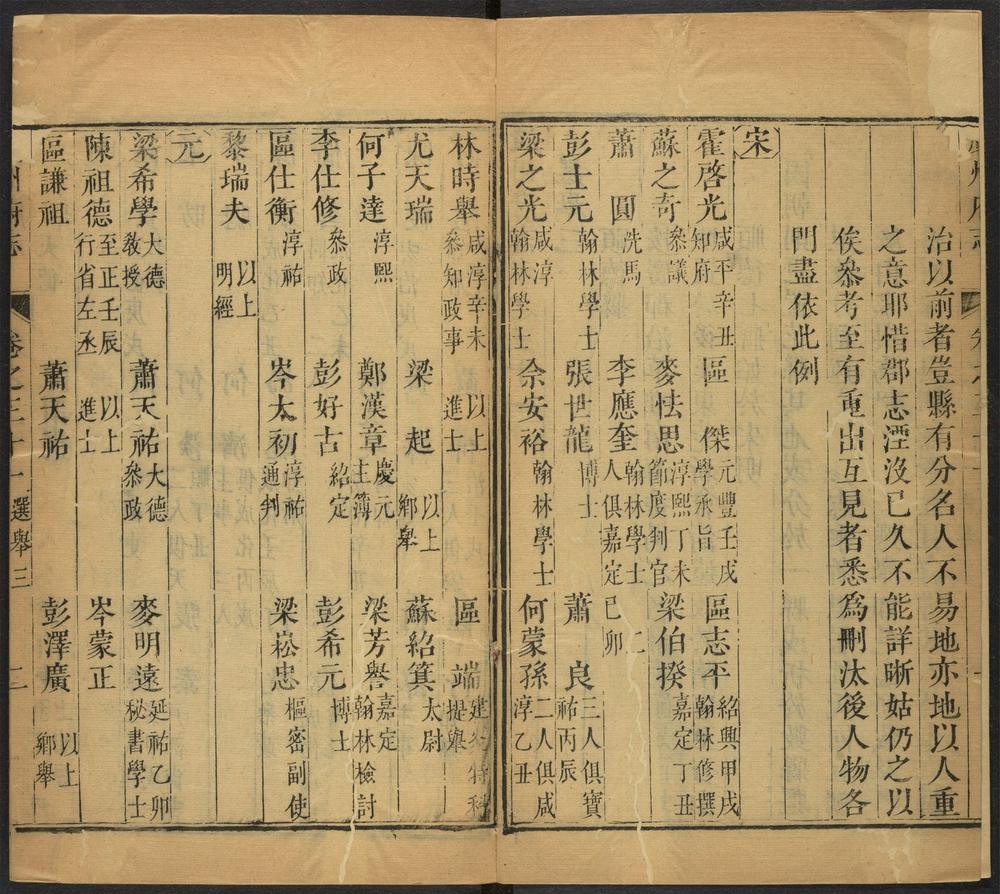 治以前者豈縣有分名人不易地亦地以人重
之意耶惜郡志湮沒已久不能詳晰姑仍之以
俟叅考至有重出互見者悉為刪汰後人物各
門盡依此例
宋
霍啓光咸平辛丑知府 區傑元豐壬戌學承旨 區志平紹興甲戌翰林修撰
蘇之奇叅議 麥怯思淳熙丁未節度判官 梁伯揆嘉定丁丑
蕭圓洗馬 李應奎翰林學士二人俱嘉定己卯
彭士元翰林學士 張世龍博士 蕭良三人俱寶祐丙辰
梁之光咸淳翰林學士 佘安裕翰林學士 何蒙孫二人俱咸淳乙丑
林時舉咸淳辛未叅知政事 以上進士 區端建炎特科提舉
尤天瑞 梁起以上鄉舉 蘇紹箕太尉
何子達淳熙 鄭漢章慶元主簿 梁芳譽嘉定翰林檢討
李仕修叅政 彭好古紹定 彭希元博士
區仕衡淳祐 岑太初淳祐通判 梁崧忠樞密副使
黎瑞夫以上明經
元
梁希學大德教授 蕭天祐大德叅政 麥明遠延祐乙卯秘書學士
陳祖德至正壬辰行省左丞 以上進士 岑蒙正
區謙祖 蕭天祐 彭澤廣以上鄉舉
州府志 卷之三十一 選舉三 二